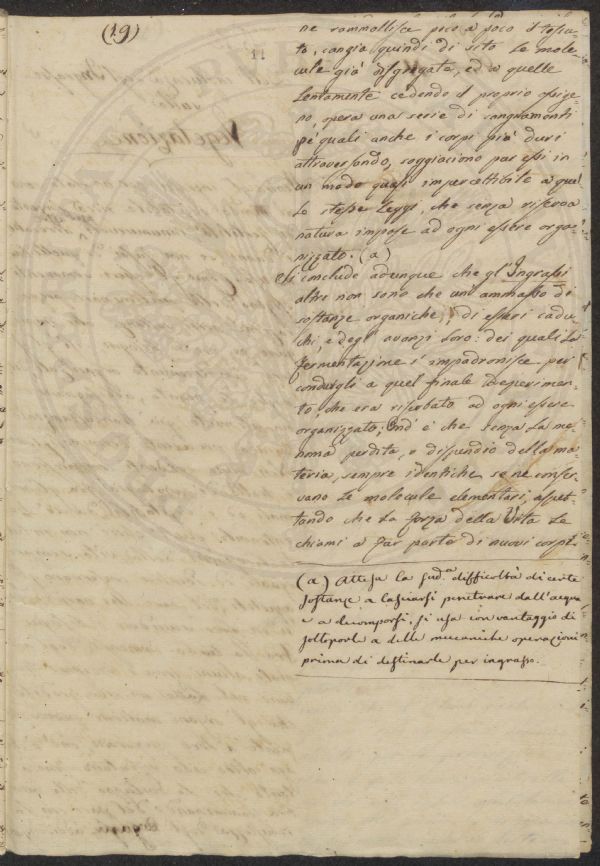 (19)
11
ne rammollisce poco a poco il tessu-
to, cangia quindi di sito le mole
cule già disgregate, ed a quelle
lentamente cedendo il proprio ossige-
no, opera una serie di cangiamenti
pe' quali anche i corpi più duri
attraversando, soggiaciono par essi in
un modo quasi impercettibile a quel
le stesse Leggi, che senza riserva
natura impose ad ogni essere orga-
nizzato. (a)
Si conclude adunque che gl'Ingrassi
altro non sono che un'ammasso di
sostanze organiche, di esseri cadu
chi, e degl'avanzi loro: dei quali la
fermentazione s'impadronisce per
condurgli a quel finale deperimen-
to, che era riserbato ad ogni essere
organizzato; Ond'è che senza la me
noma perdita, o dispendio della ma-
teria, sempre identiche se ne conser-
vano le molecule elementari, aspet-
tando che la forza della Vita le
chiami a far parte di nuovi corpi.
(a) Attesa la sud.a difficoltà di certe
sostanze a lasciarsi penetrare dall'acqua
e a decomporsi, si usa con vantaggio di
sottoporle a delle meccaniche operazioni
prima di destinarle per ingrasso.